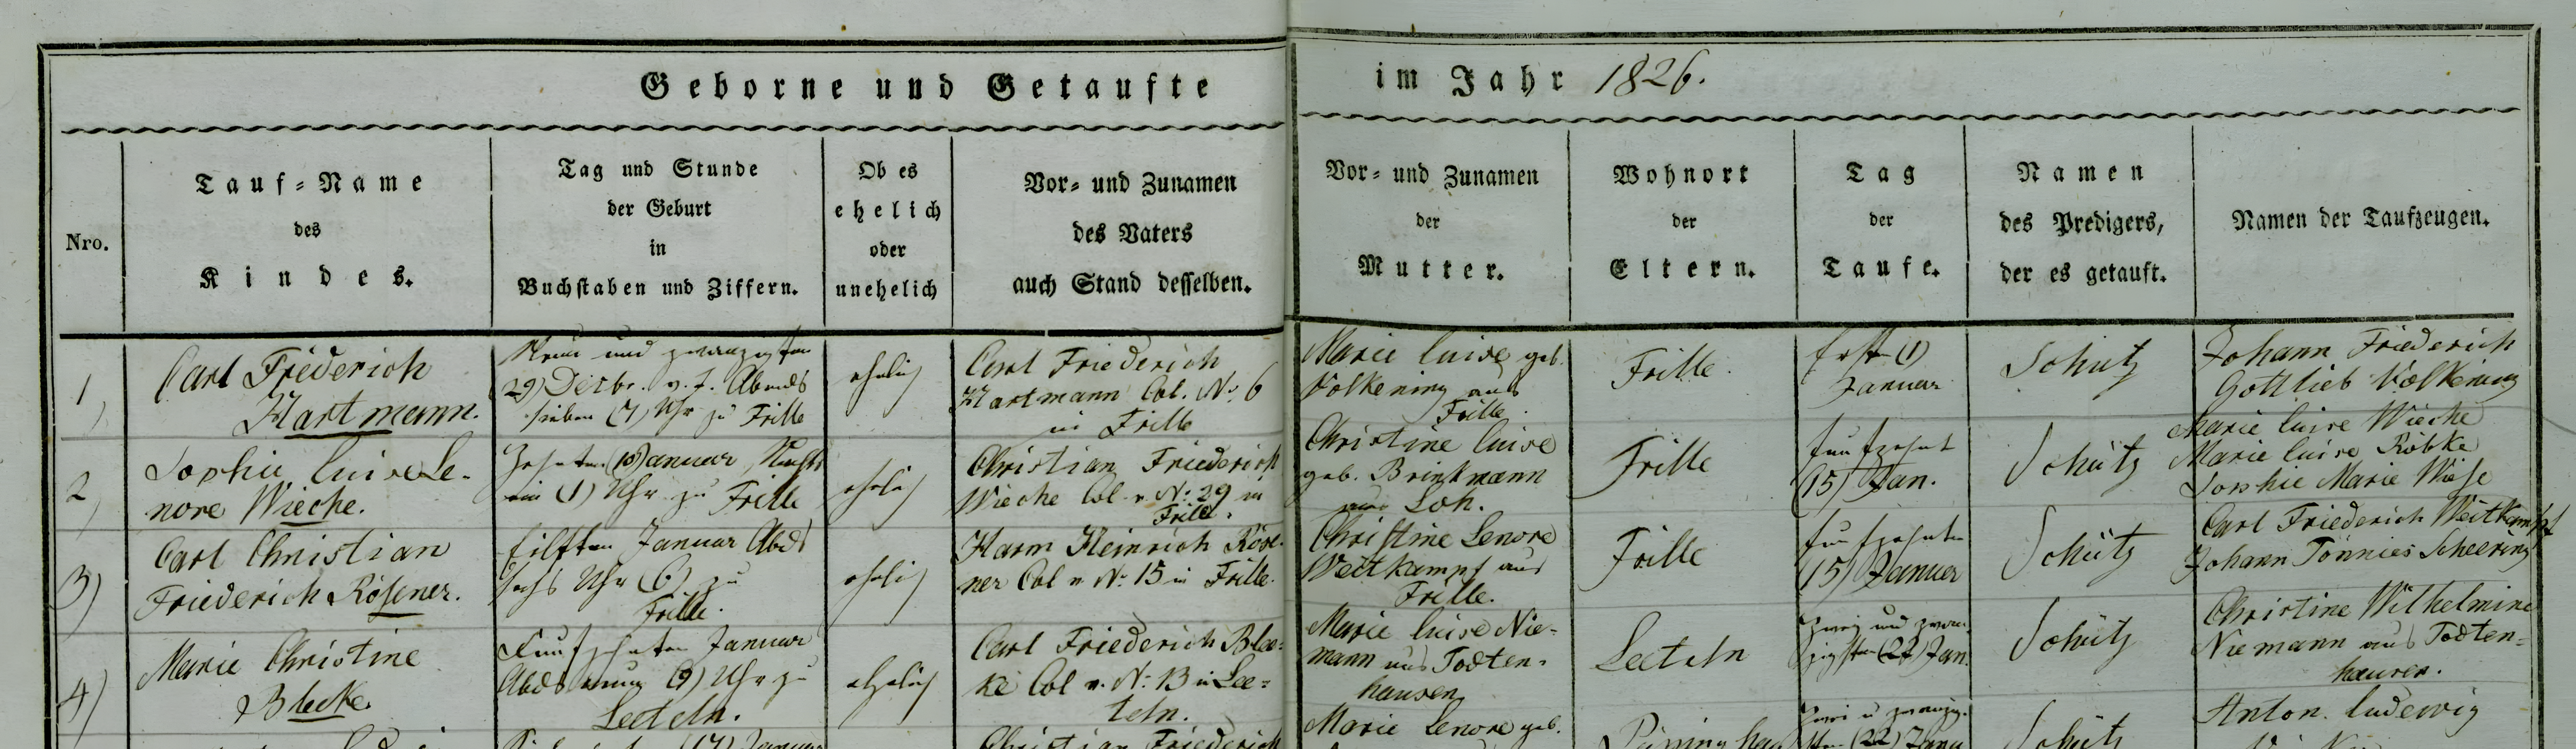 Geborne und Getaufte im Jahr 1826.
Nro.
Tauf-Name
des
Kindes.
Tag und Stunde
der Geburt
in
Buchstaben und Ziffern.
Ob es
ehelich
oder
unehelich
Vor- und Zunamen
des Vaters
auch Stand desselben.
Vor- und Zunamen
der
Mutter.
Wohnort
der
Eltern.
Tag
der
Taufe.
Namen
des Predigers,
der es getauft.
Namen der Taufzeugen.
1)
Carl Friederich
Hartmann.
Neun und zwanzigsten
29) Dezbr. v. J. Abends
sieben (7) Uhr zu Frille
ehelich
Carl Friederich
Hartmann Col. No. 6
in Frille
Marie Luise geb.
Volkening aus
Frille.
Frille.
Erst (1)
Januar
Schütz
Johann Friederich
Gottlieb Volkening
2)
Sophie Luise Le-
nore Wieche.
Zehnten (10) Januar, Nachts
ein (1) Uhr zu Frille
ehelich
Christian Friederich
Wieche Col. v. No. 29 in
Frille.
Christine Luise
geb. Brinkmann
aus Loh.
Frille
funfzehnt
(15) Jan.
Schütz
Marie Luise Wieche
Marie Luise Röbke
Sophie Marie Wiese
3)
Carl Christian
Friederich Rösener.
Eilften Januar Abds
sechs Uhr (6) zu
Frille.
ehelich
Harm Heinrich Röse-
ner Col v. No. 15 in Frille.
Christine Lenore
Weitkampf aus
Frille.
Frille
funfzehnten
(15) Januar
Schütz
Carl Friederich Weitkampf
Johann Tönnies Scheering
4)
Marie Christine
Blecke.
Funfzehnten Januar
Abds neun (9) Uhr zu
Leeteln.
ehelich
Carl Friederich Blec-
ke Col v. No. 13 in Lee-
teln.
Marie Luise Nie-
mann aus Todten-
hausen
Leeteln
Zwei und zwan-
zigsten (22) Jan.
Schütz
Christine Wilhelmine
Niemann aus Todten-
hausen.
(17) Januar
Christian Friederich
Marie Lenore geb.
Zwei u zwanzig-
sten (22) Janu
Schütz
Anton Ludewig